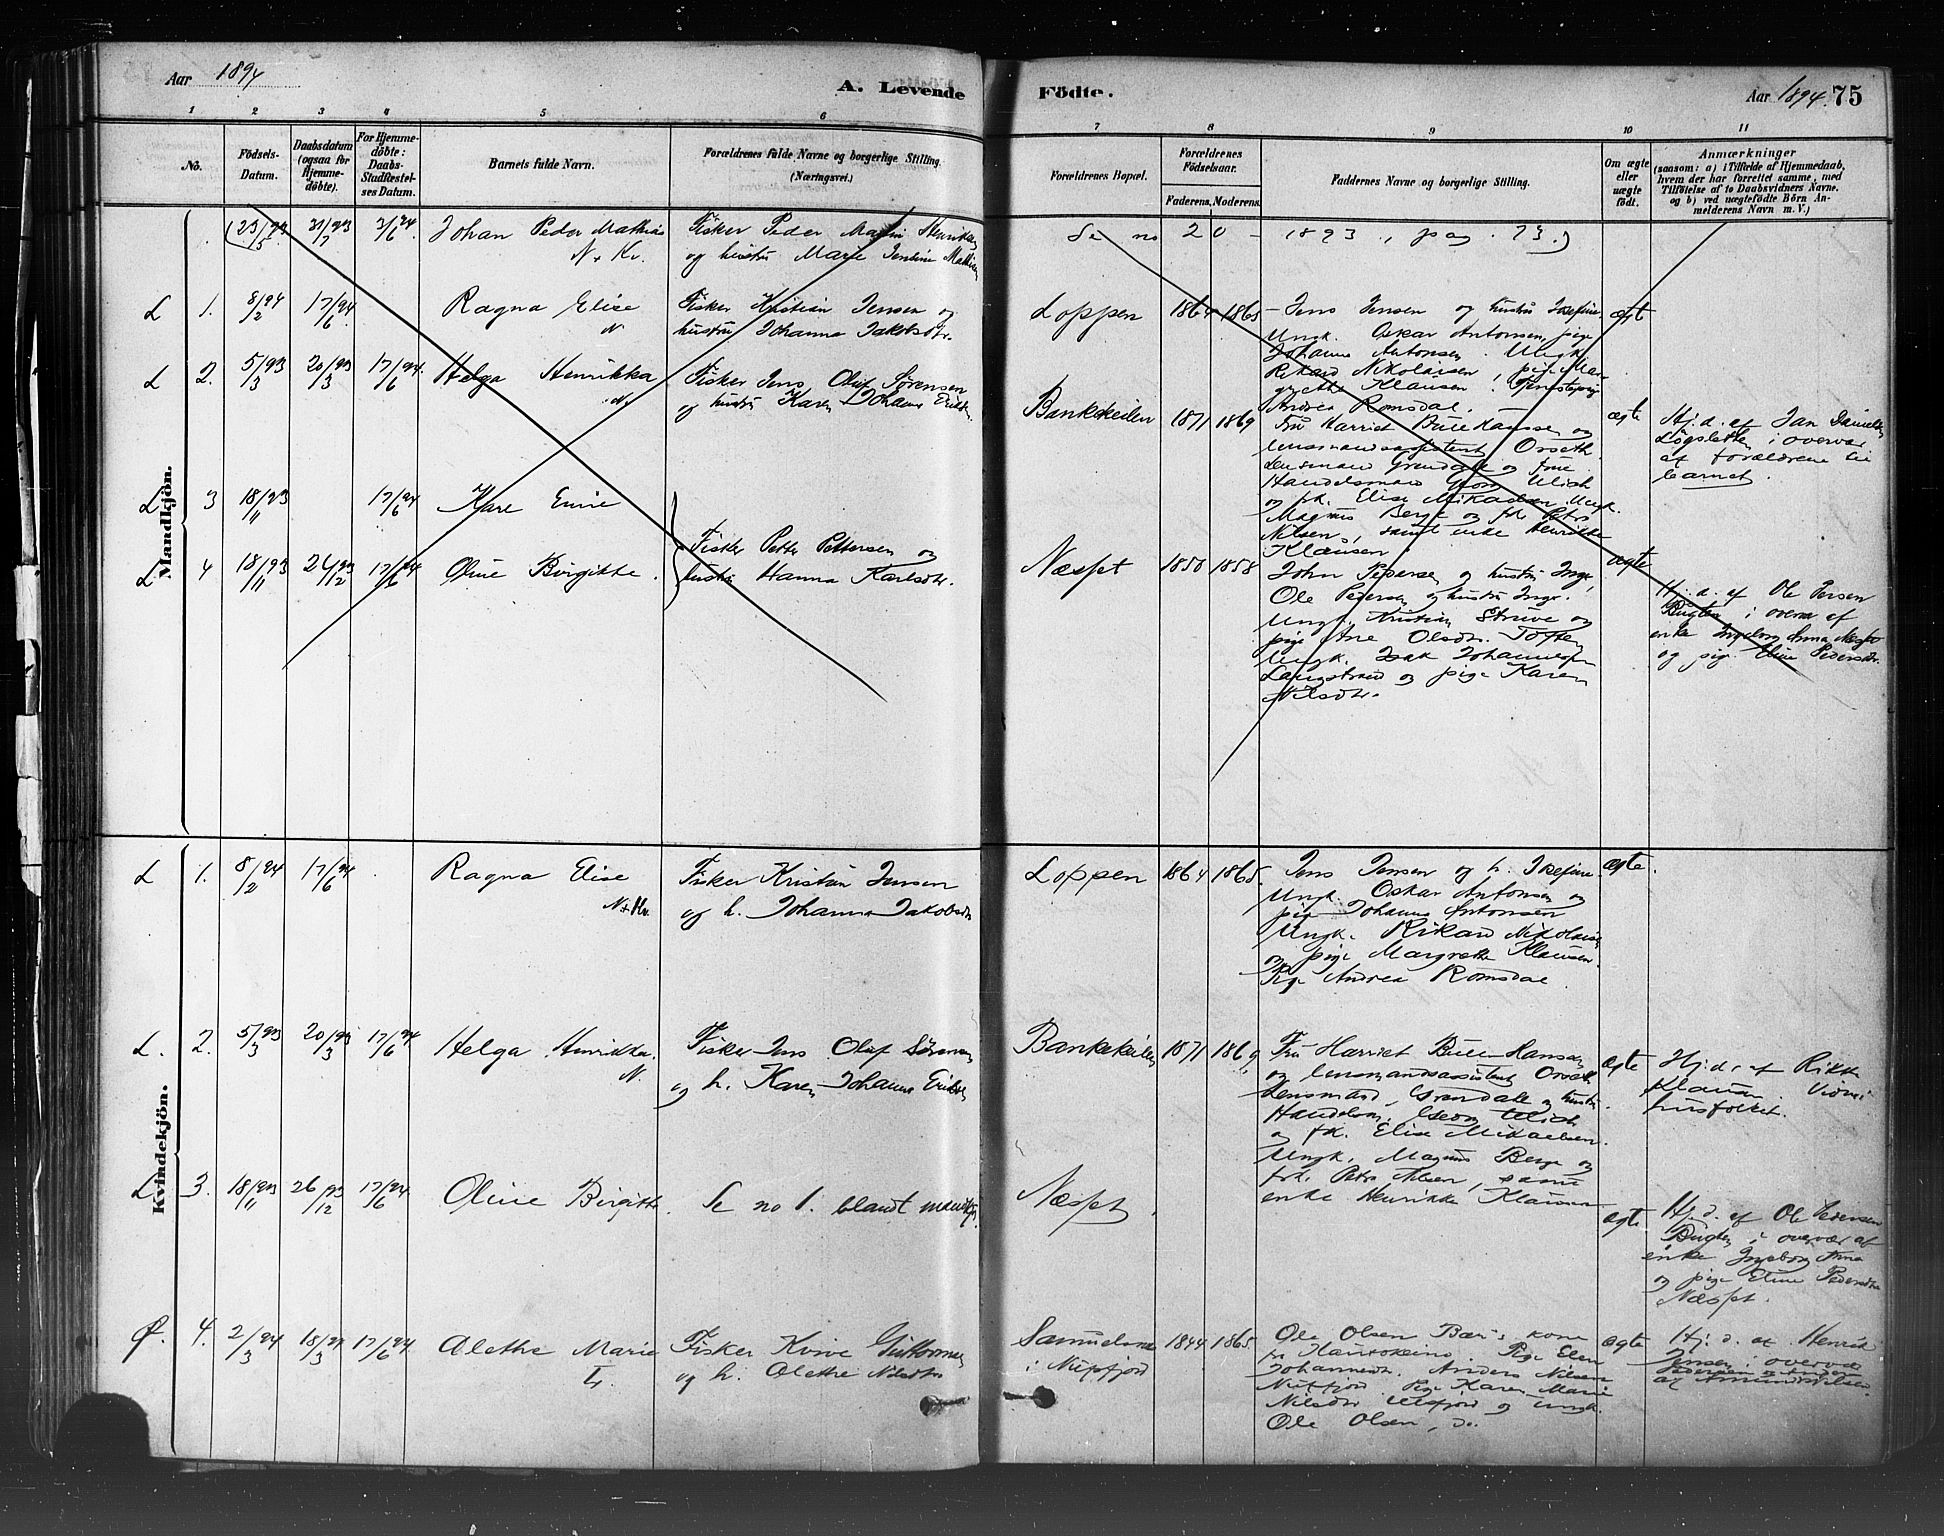 Aar 1894
A. Levende
Födte.
Aar 1894. 75
1 2 3 4 5 6 7 8 9 10 11
No.
Födsels-
Datum.
Daabsdatum
(ogsaa for
Hjemme-
döbte).
For Hjemme-
döbte:
Daabs-
Stadfæstel-
ses Datum.
Barnets fulde Navn.
Forældrenes fulde Navne og borgerlige Stilling.
(Næringsvei.)
Forældrenes Bopæl.
Forældrenes
Födselsaar.
Faderens. Moderens.
Faddernes Navne og borgerlige Stilling.
Om ægte
eller
uægte
födt.
Anmærkninger
(saasom: a) i Tilfælde af Hjemmedaab,
hvem der har forrettet samme, med
Tilföielse af to Daabsvidners Navne,
og b) ved uægtefödte Börn An-
melderens Navn m. V.)
Mandkjön.
(23/5 93 31/7 93 3/6 94. Johan Peder Mathias
N + Kv.
Fisker Peder Martin Henriksen
og hustru Marie Jentine
Se no 20 - 1893, pag. 73.)
L 1. 8/2 94 17/6 94. Ragna Elise
N.
Fisker Kristian Jensen og
hustru Johanna Jakobsdr.
Loppen 1864 1865
Jens Jensen og hustru Josefine
Ungk. Oskar Antonsen, pige
Johanna Antonsen. Ungk.
Rikard Nikolaisen, pige Mar-
grethe Klausen,
Andrea Romsdal.
ægte
L 2. 5/3 93 20/3 93 17/6 94 Helga Henrikka
N.
Fisker Jens Oluf Sørensen
og hustru Karen Johanna
Bankekeilen 1871 1869
Fru Harriet Bull Hansen og
lensmandsassistent Orseth
Lensmand Grøndahl og frue
Handelsmand Ulich
og frk. Elise Mikaelsen. Ungk.
Magnus Berge og frk Petra
Nilsen, samt enke Henrikke
Klausen
ægte
Hj.d. af Jan
i overvær
af forældrene til
barnet.
L 3 18/11 93 17/6 94 Kare Emie
L 4 18/11 93 26/12 93 17/6 94 Oline Birgitte.
Fisker Petter Pettersen og
hustru Hanna Karlsdtr.
Næsset 1850 1858
John Pedersen og hustru Inger,
Ole Pedersen og hustru Inger.
Ungk. Kristian Struve og
pige Ane Olsdtr. Toften
Ungk. Isak Johannesen
Langstrand og pige Karen
Nilsdtr.
ægte
Hj.d. af Ole Persen
Bugten i overvær af
enke Ingeborg Anna Næsset
og pige Eline Pedersdtr.
Kvindekjön.
L 1. 8/2 94 17/6 94 Ragna Elise
N + Kv.
Fisker Kristian Jensen
og h. Johanna Jakobsdtr
Loppen 1864 1865.
Jens Jensen og h. Josefine
Ungk. Oskar Antonsen og
pige Johanna Antonsen
Ungk. Rikard Nikolaisen
og pige Margrethe Klausen.
Pige Andrea Romsdal
ægte.
L. 2. 5/3 93 20/3 93 17/6 94 Helga Henrikka.
N.
Fisker Jens Oluf Sørensen
og h. Karen Johanna
Bankekeilen 1871 1869
Fru Harriet Bull-Hansen
og lensmandsassistent Orseth
Lensmand Grøndahl og hustru.
Handelsm. Georg Ulich
og frk. Elise Mikaelsen.
Ungk. Magnus Berge og
frk. Petra Nilsen, samt
enke Henrikke Klausen
ægte
Hj.d. af Rikke
Klausen. Vidner
husfolket.
L. 3. 18/11 93 26/12 93 17/6 94 Oline Birgitte.
Se no 1. blandt mandkj.
Næsset.
ægte
Hj.d. af Ole Pedersen
Bugten i overvær af
enke Ingeborg Anna
og pige Eline Pedersdtr
Næsset.
Ø. 4. 2/3 94 18/3 94 17/6 94 Alethe Marie
L.
Fisker Kvive Guttormsen
og h. Alethe Nilsdtr
i Nuvsfjord 1844 1865.
Ole Olsen Bær's kone
fr Kautokeino Pige Elen
Johannesdr. Anders Nilsen
Nuvsfjord. Pige Karen Marie
Nilsdtr Ulsfjord og ungk.
Ole Olsen, do.
ægte
Hj.d. af Henrik
Jensen i overvær
af Amund Nilsen.